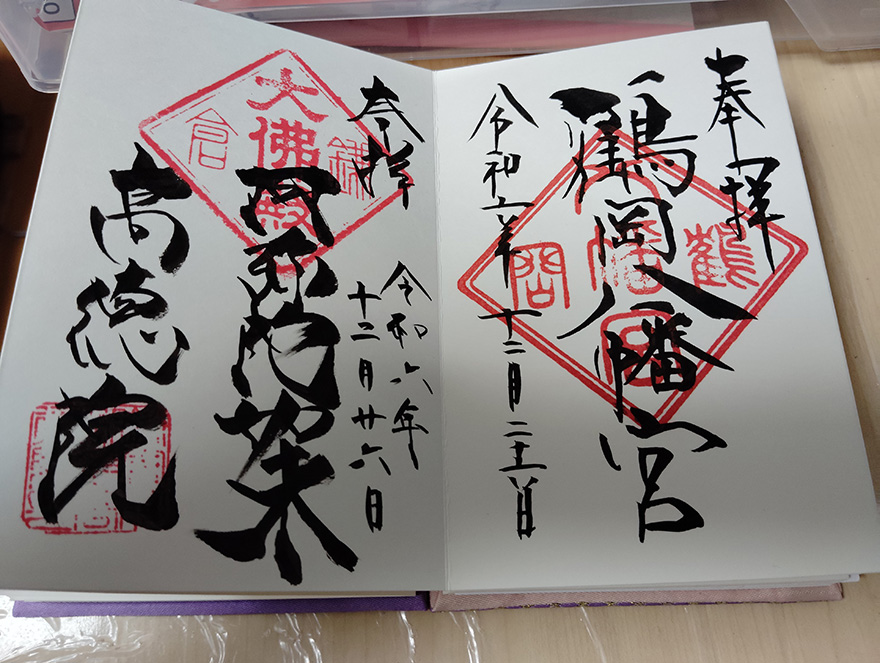 奉拝
鶴岡八幡宮
令和六年十二月二十六日
奉拝
令和六年
十二月廿六日
鎌
大佛殿
倉
阿弥陀
高徳院